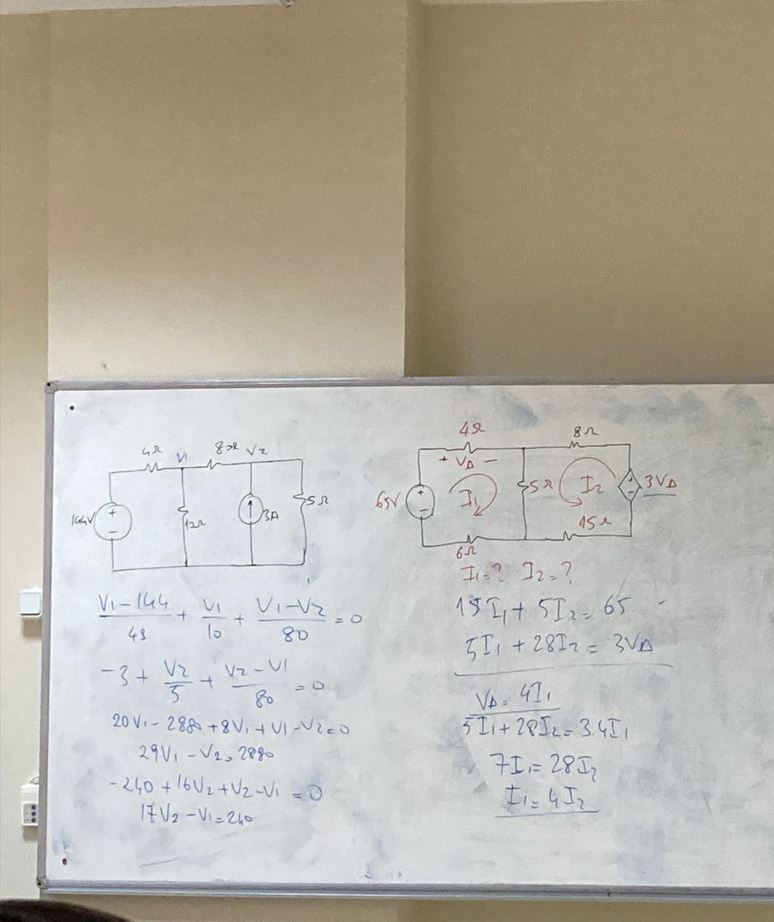 4Ω V1 80Ω V2
144V
3A
5Ω
V1-144/4 + V1/10 + V1-V2/80 = 0
-3 + V2/5 + V2-V1/80 = 0
20V1 - 2880 + 8V1 + V1 - V2 = 0
29V1 - V2 = 2880
-240 + 16V2 + V2 - V1 = 0
17V2 - V1 = 240
4Ω 8Ω
+ VΔ -
65V I1 5Ω I2 3VΔ
6Ω 15Ω
I1=? I2=?
15I1 + 5I2 = 65
5I1 + 28I2 = 3VΔ
VΔ = 4I1
5I1 + 28I2 = 3.4I1
7I1 = 28I2
I1 = 4I2